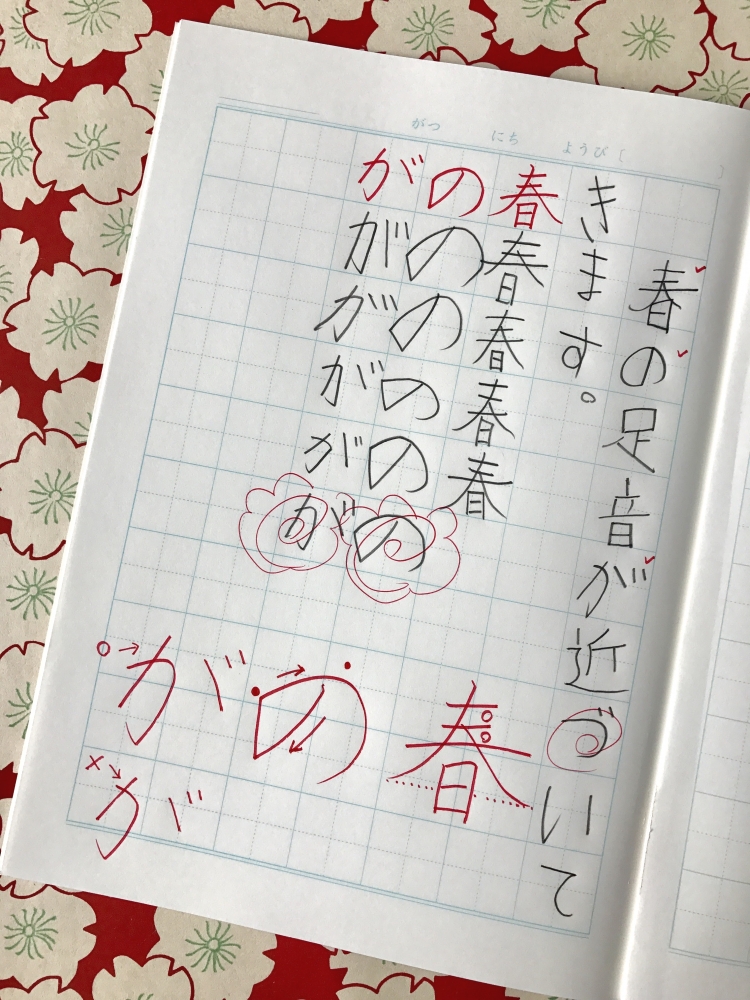 がつ にち ようび [ ]
春の足音が近づいて
きます。
春春春春春
のののののの
がががががが
春
の
○→が
×→が